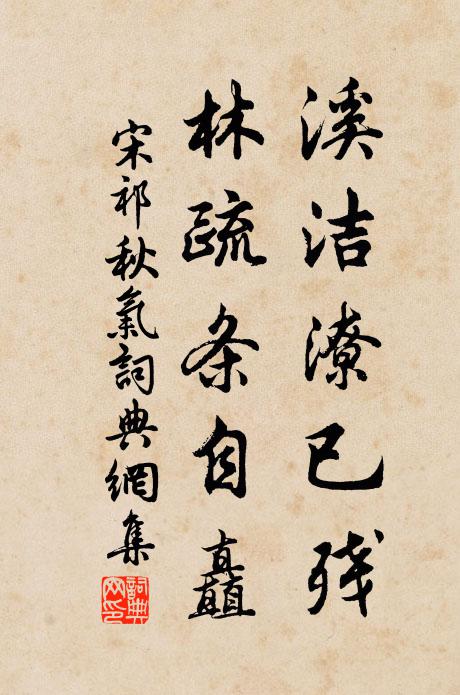 溪洁潦已残
林疏条自矗
宋祁秋氣詞典網集
詞典网印